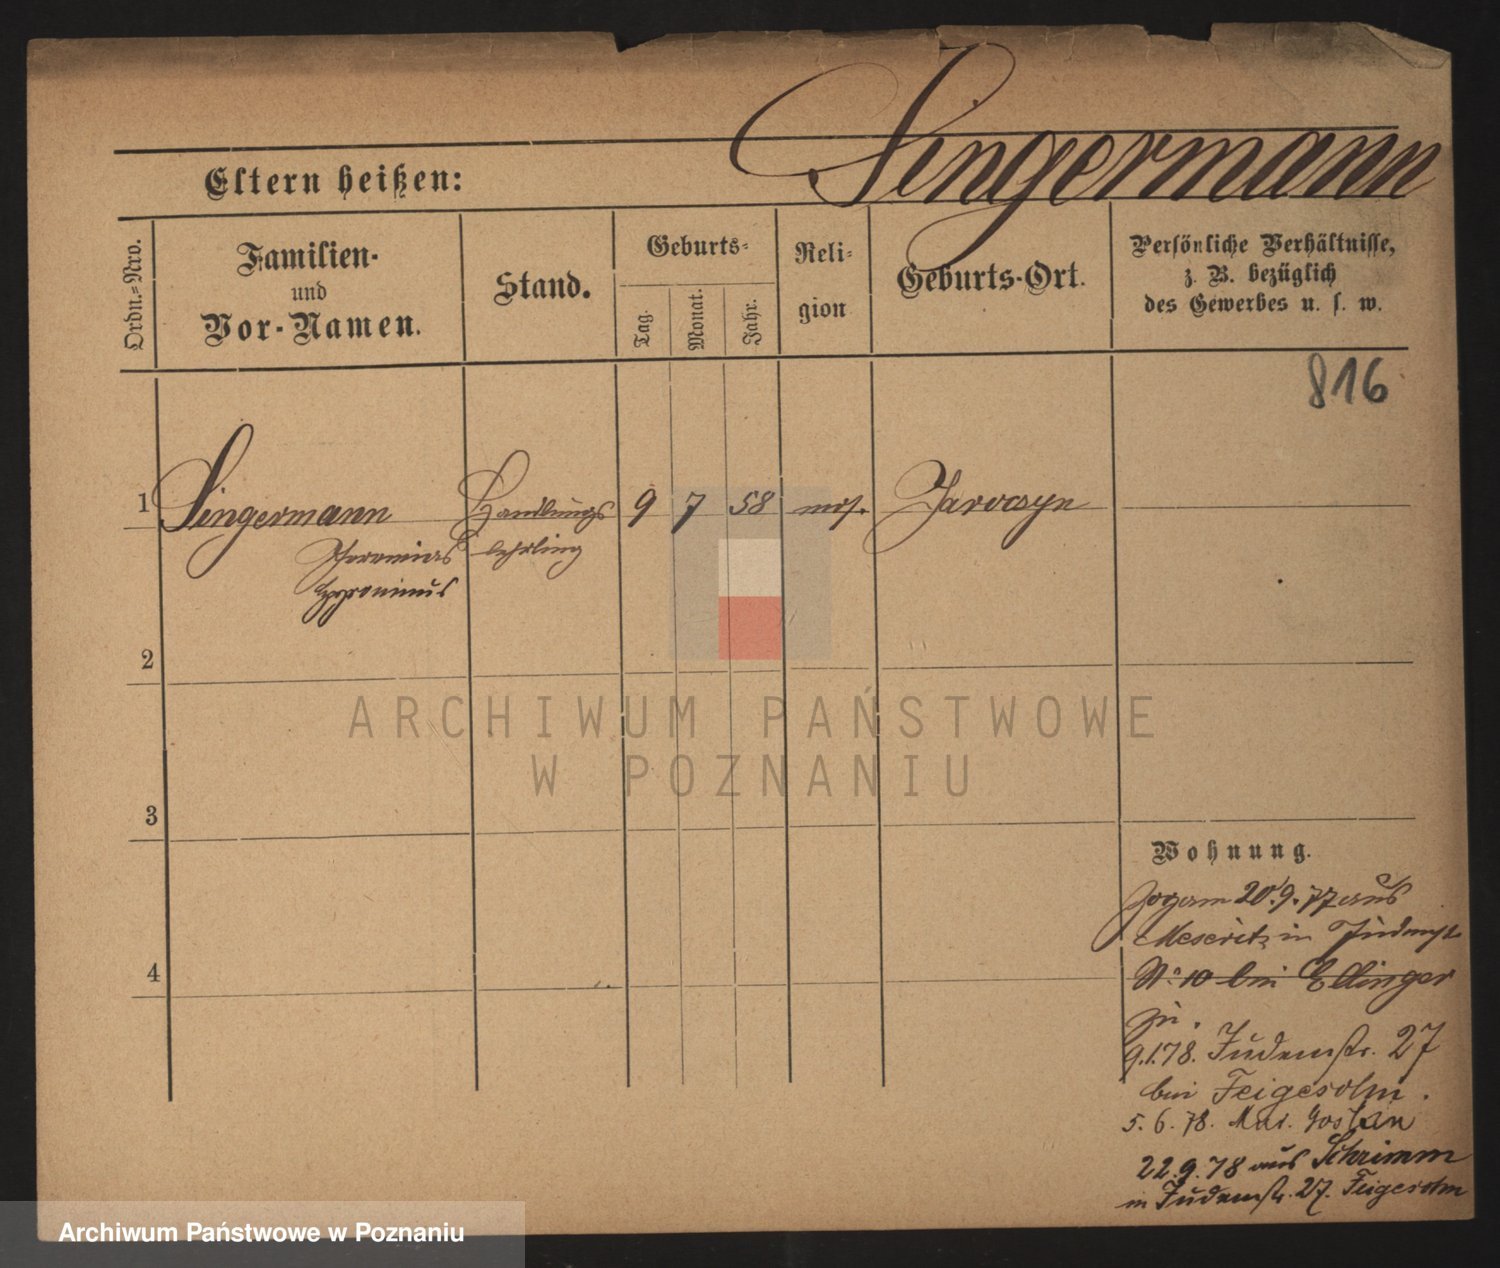 Singermann
Eltern heißen:
Ordn.=Nro.
Familien-
und
Vor-Namen.
Stand.
Geburts=
Tag.
Monat.
Jahr.
Reli=
gion
Geburts-Ort.
Persönliche Verhältnisse,
z. B. bezüglich
des Gewerbes u. s. w.
816
1 Singermann Handlungs 9 7 58 mos. Jaroczyn
lehrling
2
3
4
Wohnung.
Zog am 20.9.77 aus
Meseritz in Judenstr
No 10 bei Ellinger
zu.
9.1.78. Judenstr. 27
bei Feigesohn.
5.6.78. Gostyn
22.9.78 aus Schrimm
in Judenstr. 27. Feigesohn
ARCHIWUM PAŃSTWOWE
W POZNANIU
Archiwum Państwowe w Poznaniu